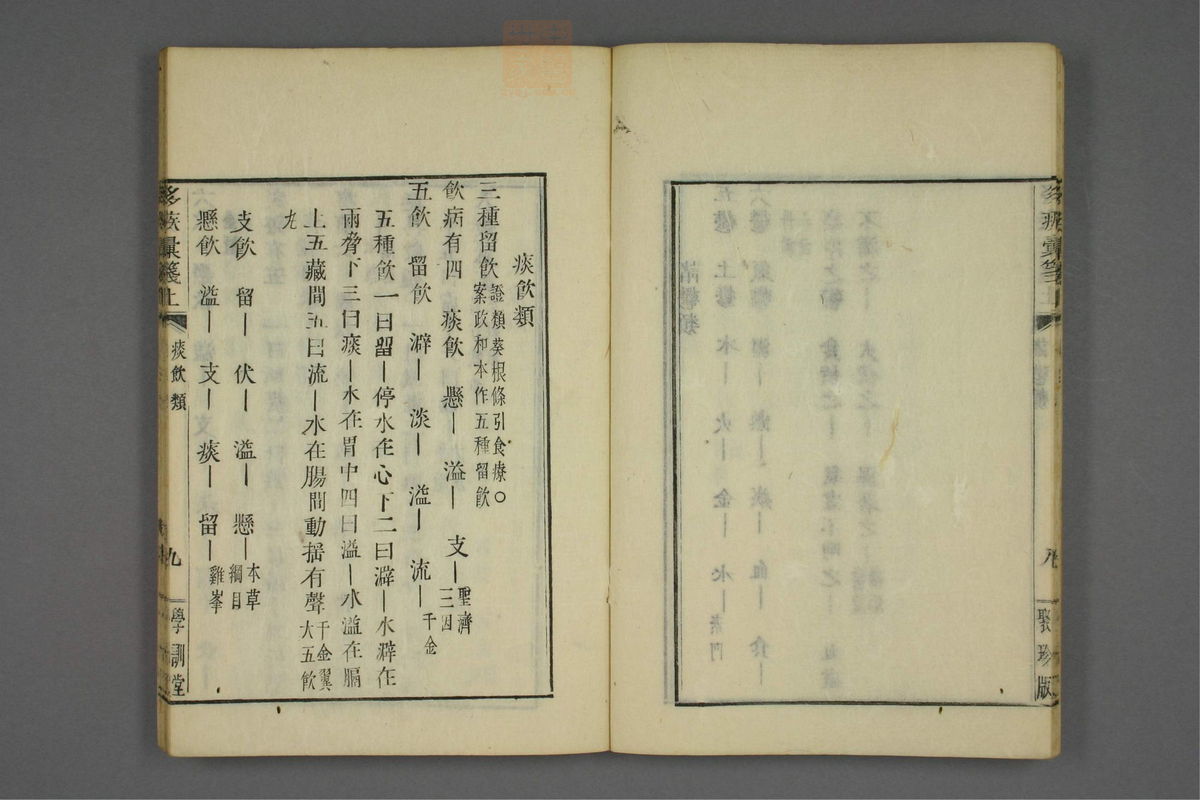 聚珍版
痰飲類
三種留飲證類葵根條引食療○案政和本作五種留飲
飲病有四　痰飲　懸｜　溢｜　支｜聖濟三因
五飲　留飲　澼｜　淡｜　溢｜　流｜千金
五種飲一曰留｜停水在心下二曰澼｜水澼在
兩脅下三曰痰｜水在胃中四曰溢｜水溢在膈
上五藏間五曰流｜水在腸間動搖有聲千金翼大五飲
丸
支飲　留｜　伏｜　溢｜　懸｜本草綱目
懸飲　溢｜　支｜　痰｜　留｜雞峯
痰飲類
九
學訓堂